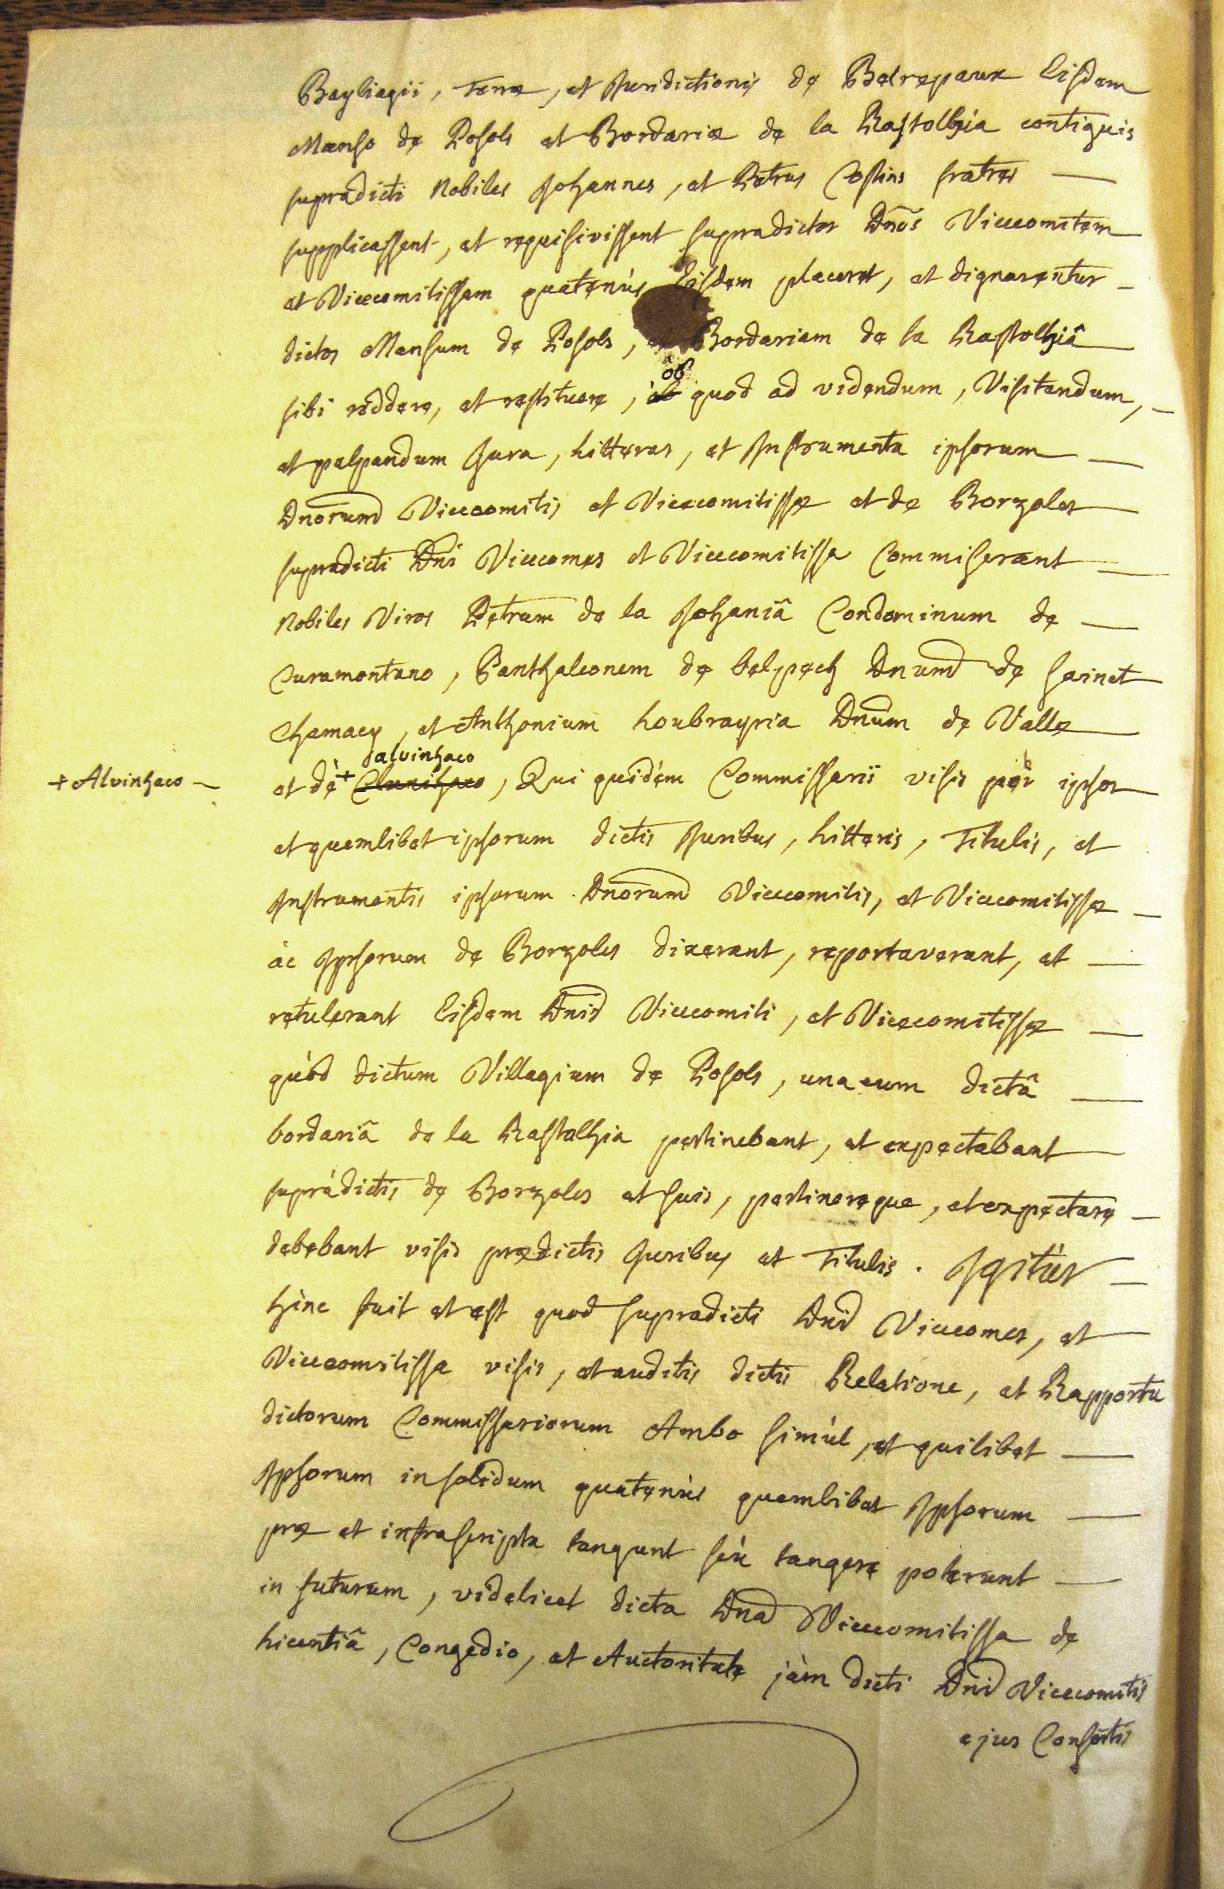 Bayliagii, Terræ, et Juridictionis de Belrepaux Eisdem
Manso de Posols et Bordariæ de la Rastolhia contiguis
supradicti Nobiles Johannes, et Petrus Costins fratres —
supplicassent, et requisivissent supradictos Dnos Vicecomitem
et Vicecomitissam quatenùs Eisdem placeret, et dignarentur —
dictos Mansum de Posols, et Bordariam de la Rastolhiâ
sibi reddere, et restituere, ôb quod ad videndum, Visitandum, —
et palpandum Jura, Litteras, et Instrumenta ipsorum —
Dnorum Vicecomitis et Vicecomitissæ et de Borzoles
supradicti Dni Vicecomes et Vicecomitissa Commiserant —
Nobiles Viros Petrum de la Johaniâ Condominum de —
Curamontano, Panthaleonem de belpech Dnum de Sainct
Chamacy, et Anthonium Loubrayria Dnum de Valle
alvinhaco
+ Alvinhaco — et dè +, Qui quidèm Commissarii visis pèr ipsos
et quemlibet ipsorum dictis Juribus, Litteris, Titulis, et
Instrumentis ipsorum Dnorum Vicecomitis, et Vicecomitissæ —
àc Ipsorum de Borzoles dixerant, reportaverant, et —
retulerant Eisdem Dnis Vicecomiti, et Vicecomitissæ —
quòd dictum Villagium de Posols, una cum dictâ —
bordariâ de la Rastolhia pertinebant, et expectabant
supràdictis de Borzoles et suis, pertinereque, et expectare —
debebant visis prædictis Juribus et Titulis. Igitùr —
hìnc fuit et est quod supradicti Dni Vicecomes, et
Vicecomitissa visis, et auditis dictis Relatione, et Rapportu
dictorum Commissariorum Ambo simùl, et quilibet —
Ipsorum in solidum quatenùs quemlibet Ipsorum —
præ et infrascripta tangunt seù tangere poterunt —
in futurum, videlicet dicta Dna Vicecomitissa de
Licentiâ, Congedio, et Auctoritate jàm dicti Dni Vicecomitis
ejus Consortis